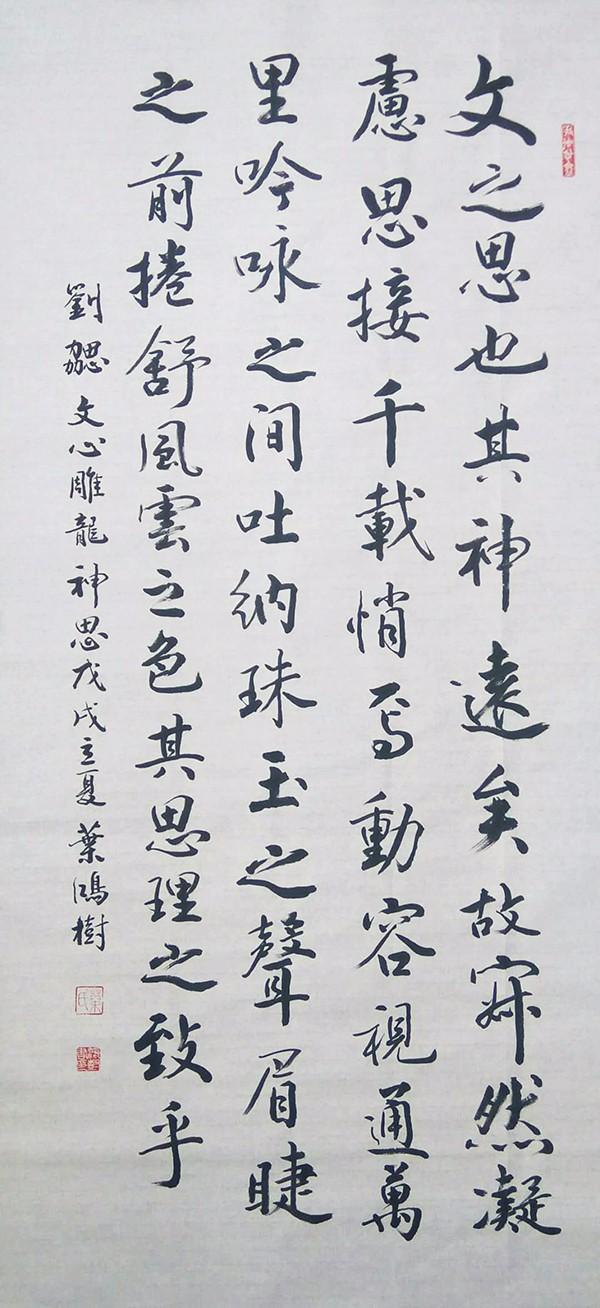 文之思也其神遠矣故寂然凝
慮思接千載悄焉動容視通萬
里吟咏之间吐纳珠玉之聲眉睫
之前捲舒風雲之色其思理之致乎
劉勰文心雕龍神思戊戌立夏葉鴻樹